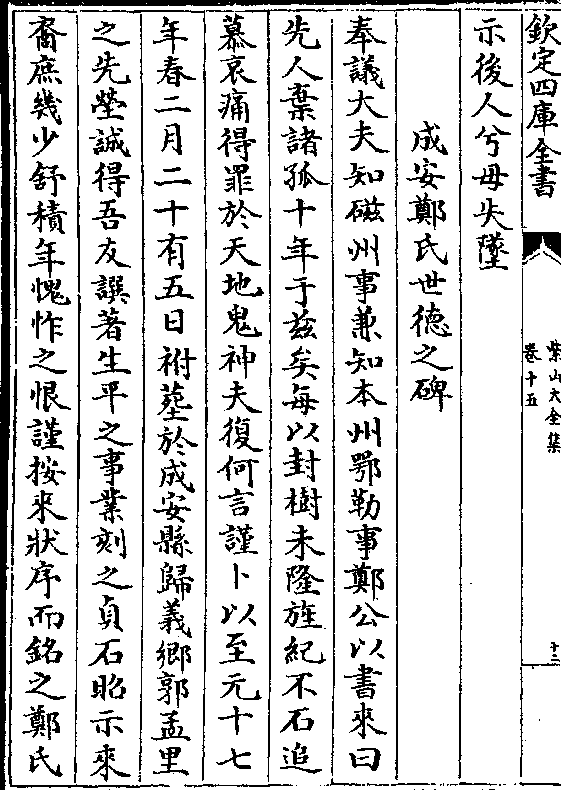 欽定四庫全書
紫山大全集
卷十五
十二
示後人兮毋失墜
成安鄭氏世德之碑
奉議大夫知磁州事兼知本州鄂勒事鄭公以書來曰
先人棄諸孤十年于兹矣每以封樹未隆旌紀不石追
慕哀痛得罪於天地鬼神夫復何言謹卜以至元十七
年春二月二十有五日祔葬於成安縣歸義鄉郭孟里
之先塋誠得吾友譔著生平之事業刻之貞石昭示來
裔庶幾少舒積年愧怍之恨謹按來狀序而銘之鄭氏